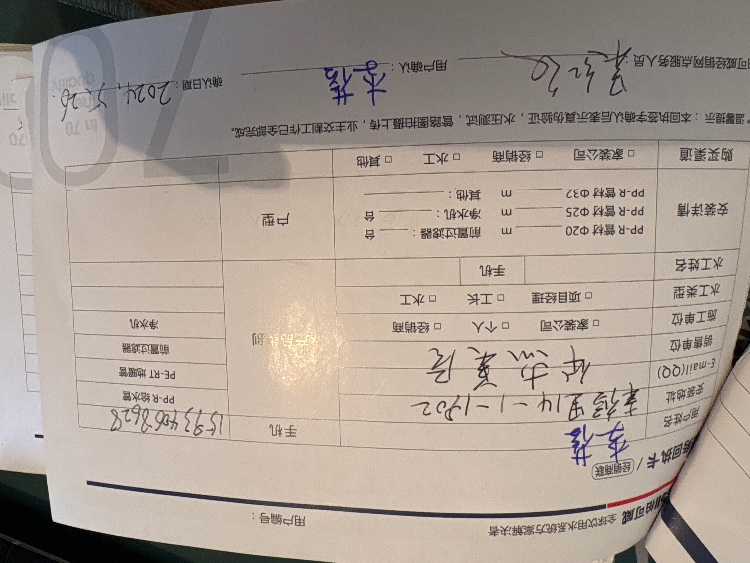 可威 全球饮用水系统方案解决者 用户编号：
回执卡 / 经销商联
用户姓名 李蓓 手机 15934068628
安装地址 14-1-1802
E-mail(QQ)
销售单位
施工单位 □ 家装公司 □ 个人 □ 经销商
水工类型 □ 项目经理 □ 工长 □ 水工
水工姓名 手机
产品类别
PP-R 给水管
PE-RT 地暖管
前置过滤器
净水机
安装详情
PP-R 管材 Φ20 m 前置过滤器： 台
PP-R 管材 Φ25 m 净水机： 台
PP-R 管材 Φ32 m 其他：
户型
购买渠道 □ 家装公司 □ 经销商 □ 水工 □ 其他
*温馨提示：本回执签字确认后表示真伪验证，水压测试，管路图拍摄上传，业主交割工作已全部完成。
可威经销网点服务人员 用户确认：李蓓 确认日期：2024.5.26.